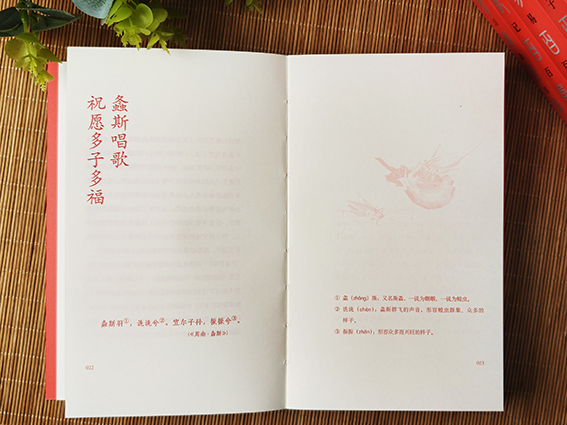 螽斯唱歌
祝愿多子多福
螽斯羽①，诜诜兮②。宜尔子孙，振振兮③。
（《周南·螽斯》）
022
① 螽（zhōng）斯，又名蚣蝑，一说为蝈蝈，一说为蝗虫。
② 诜诜（shēn）：螽斯群飞的声音，形容蝗虫群集、众多的
样子。
③ 振振（zhēn）：形容众多而兴旺的样子。
023